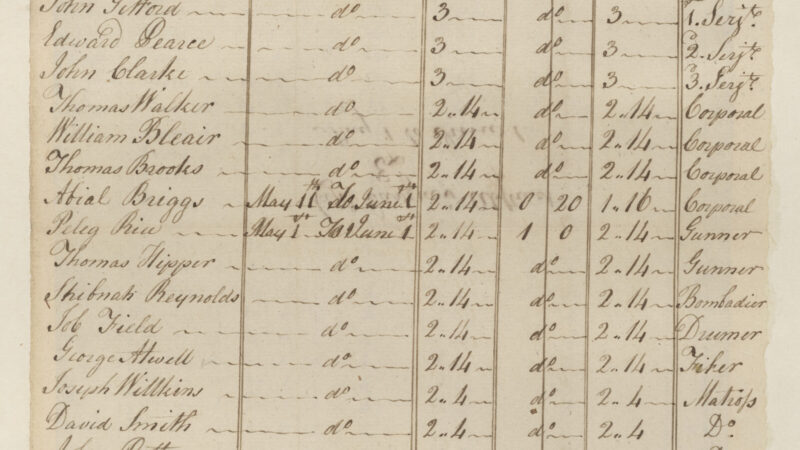 John Tefford do 3 do 3 1. Serjt.
Edward Pearce do 3 do 3 2. Serjt.
John Clarke do 3 do 3 3. Serjt.
Thomas Walker do 2..14 do 2..14 Corporal
William Bleair do 2..14 do 2..14 Corporal
Thomas Brooks do 2..14 do 2..14 Corporal
Abial Briggs May 11th To June 1st 2..14 0 20 1..16 Corporal
Peleg Rice May 1st To June 1st 2..14 1 0 2..14 Gunner
Thomas Hipper do 2..14 do 2..14 Gunner
Shibnah Reynolds do 2..14 do 2..14 Bombadier
Job Field do 2..14 do 2..14 Drumer
George Atwell do 2..14 do 2..14 Fifer
Joseph Willtkins do 2..4 do 2..4 Matross
David Smith do 2..4 do 2..4 Do.